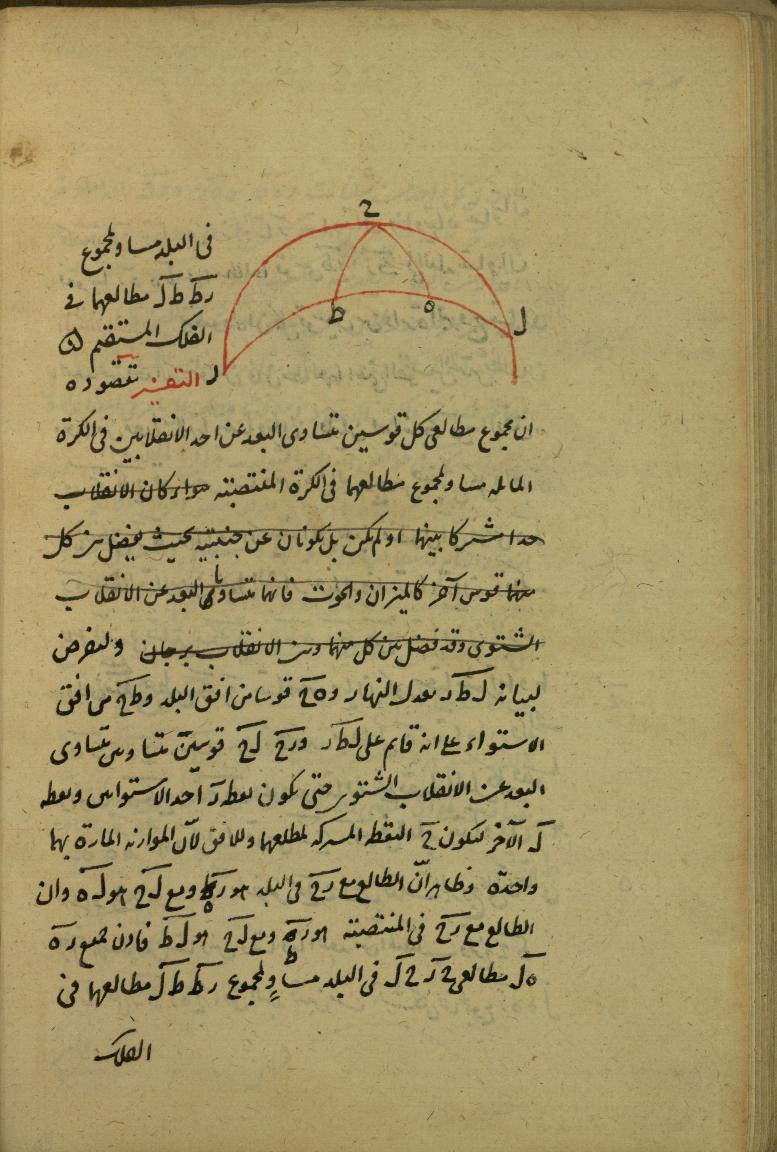 ح
ط
ه
ل
ر
فى البلد مساو لمجموع
رط طل مطالعهما فى
الفلك المستقيم
التفسير مقصوده
ان مجموع مطالعى كل قوسين متساوى البعد عن احد الانقلابين فى الكرة
المائله مساو لمجموع مطالعهما فى الكرة المنتصبة سواء كان الانقلاب
حدا مشتركا بينهما او لم يكن بل يكونان عن جنبتيه بحيث يفصل بين كل
منهما قوس آخر كالميزان والحوت فانهما متساويا البعد عن الانقلاب
الشتوى وقد فصل بين كل منهما وبين الانقلاب برجان وليفرض
لبيانه ل ط ر معدل النهار و ه ح قوسا من افق البلد و ط ح من افق
الاستواء على انه قائم على ل ط ر و ر ح ل ح قوسين متساويين متساوى
البعد عن الانقلاب الشتوى حتى يكون نقطه ر احد الاستوايين ونقطه
ل الآخر ليكون ح النقطه المشتركه لمطلعهما وللافق لان الموازنه المارة بهما
واحدة وظاهر ان الطالع مع ر ح فى البلد هو ر ه ومع ل ح هو ل ه وان
الطالع مع ر ح فى المنتصبة هو ر ط ومع ل ح هو ل ط فاذن جميع ر ه
ه ل مطالعى ح ر ح ل فى البلد مساو لمجموع ر ط ط ل مطالعهما فى
الفلك